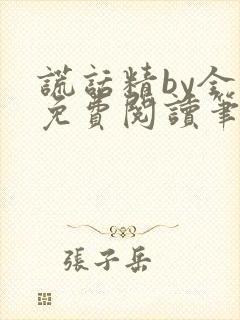 謊話精by全
免費閱讀筆
張子岳